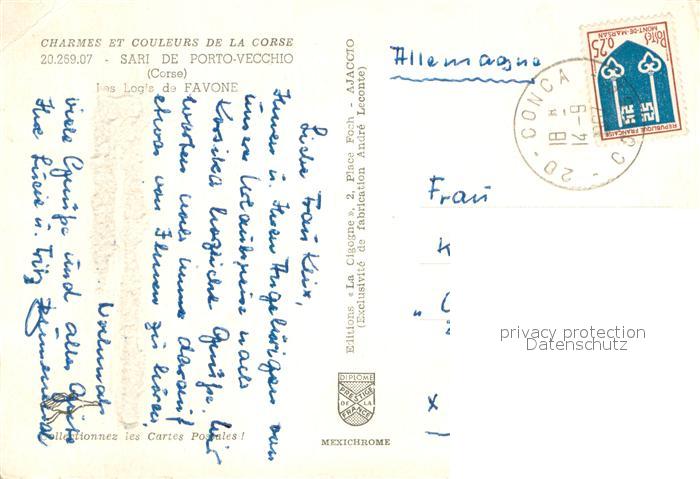 CHARMES ET COULEURS DE LA CORSE
20.269.07 - SARI DE PORTO-VECCHIO
(Corse)
Les Logis de FAVONE
Liebe Frau
Ihnen u. Ihren Angehörigen von
unserer Urlaubsreise nach
Korsika herzliche Grüße. Wir
warten noch immer darauf
etwas von Ihnen zu hören.
Nochmals
viele Grüße und alles Gute
Ihre u. Fritz
Collectionnez les Cartes Postales !
Editions « La Cigogne », 2, Place Foch - AJACCIO
(Exclusivité de fabrication André Leconte)
DIPLOME
PRESTIGE
DE LA
FRANCE
MEXICHROME
Allemagne
Postes
0,25
MONT-DE-MARSAN
REPUBLIQUE FRANÇAISE
20 - CONCA
18 H
14 - 9
Frau
K
"
x
privacy protection
Datenschutz